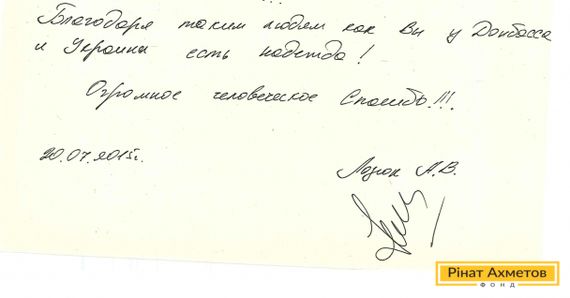 Благодаря таким людям как Вы у Донбасса
и Украины есть надежда!
Огромное человеческое Спасибо!!!
20.07.2015г.
Лозюк А.В.
Рінат Ахметов
ФОНД